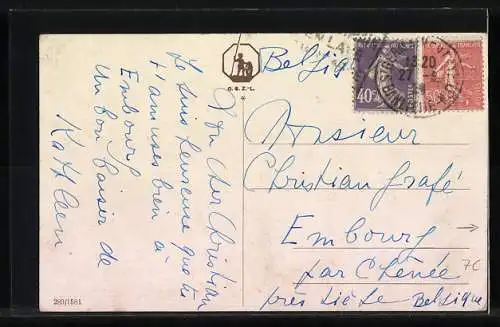 Mon cher Christian
Je suis heureuse que tu
t'amuses bien à
Embourg
Un bon baiser de
Kathleen
G. B. Z.-L.
280/1561
Belgique
40c
13 20
27
Monsieur
Christian Grafé
Embourg
par Chênée
près Liège Belgique
70